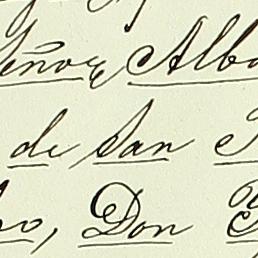 eñor Alba
de San
o, Don